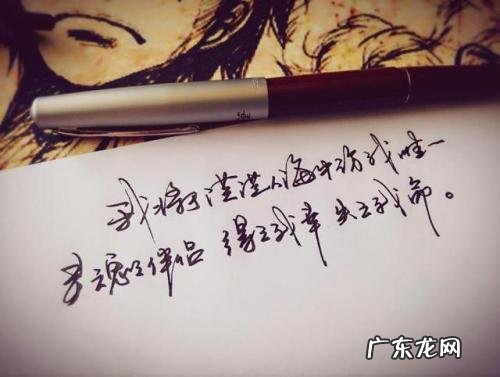 我将于茫茫人海中访我唯一
灵魂之伴侣 得之我幸 失之我命。
广东龙网